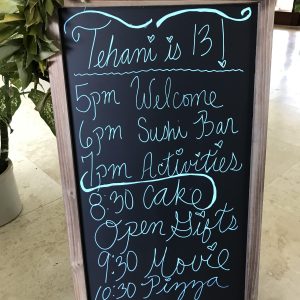 Tehani is 13!
5pm Welcome
6pm Sushi Bar
7pm Activities
8:30 Cake
Open Gifts
9:30 Movie
10:30 Pizza